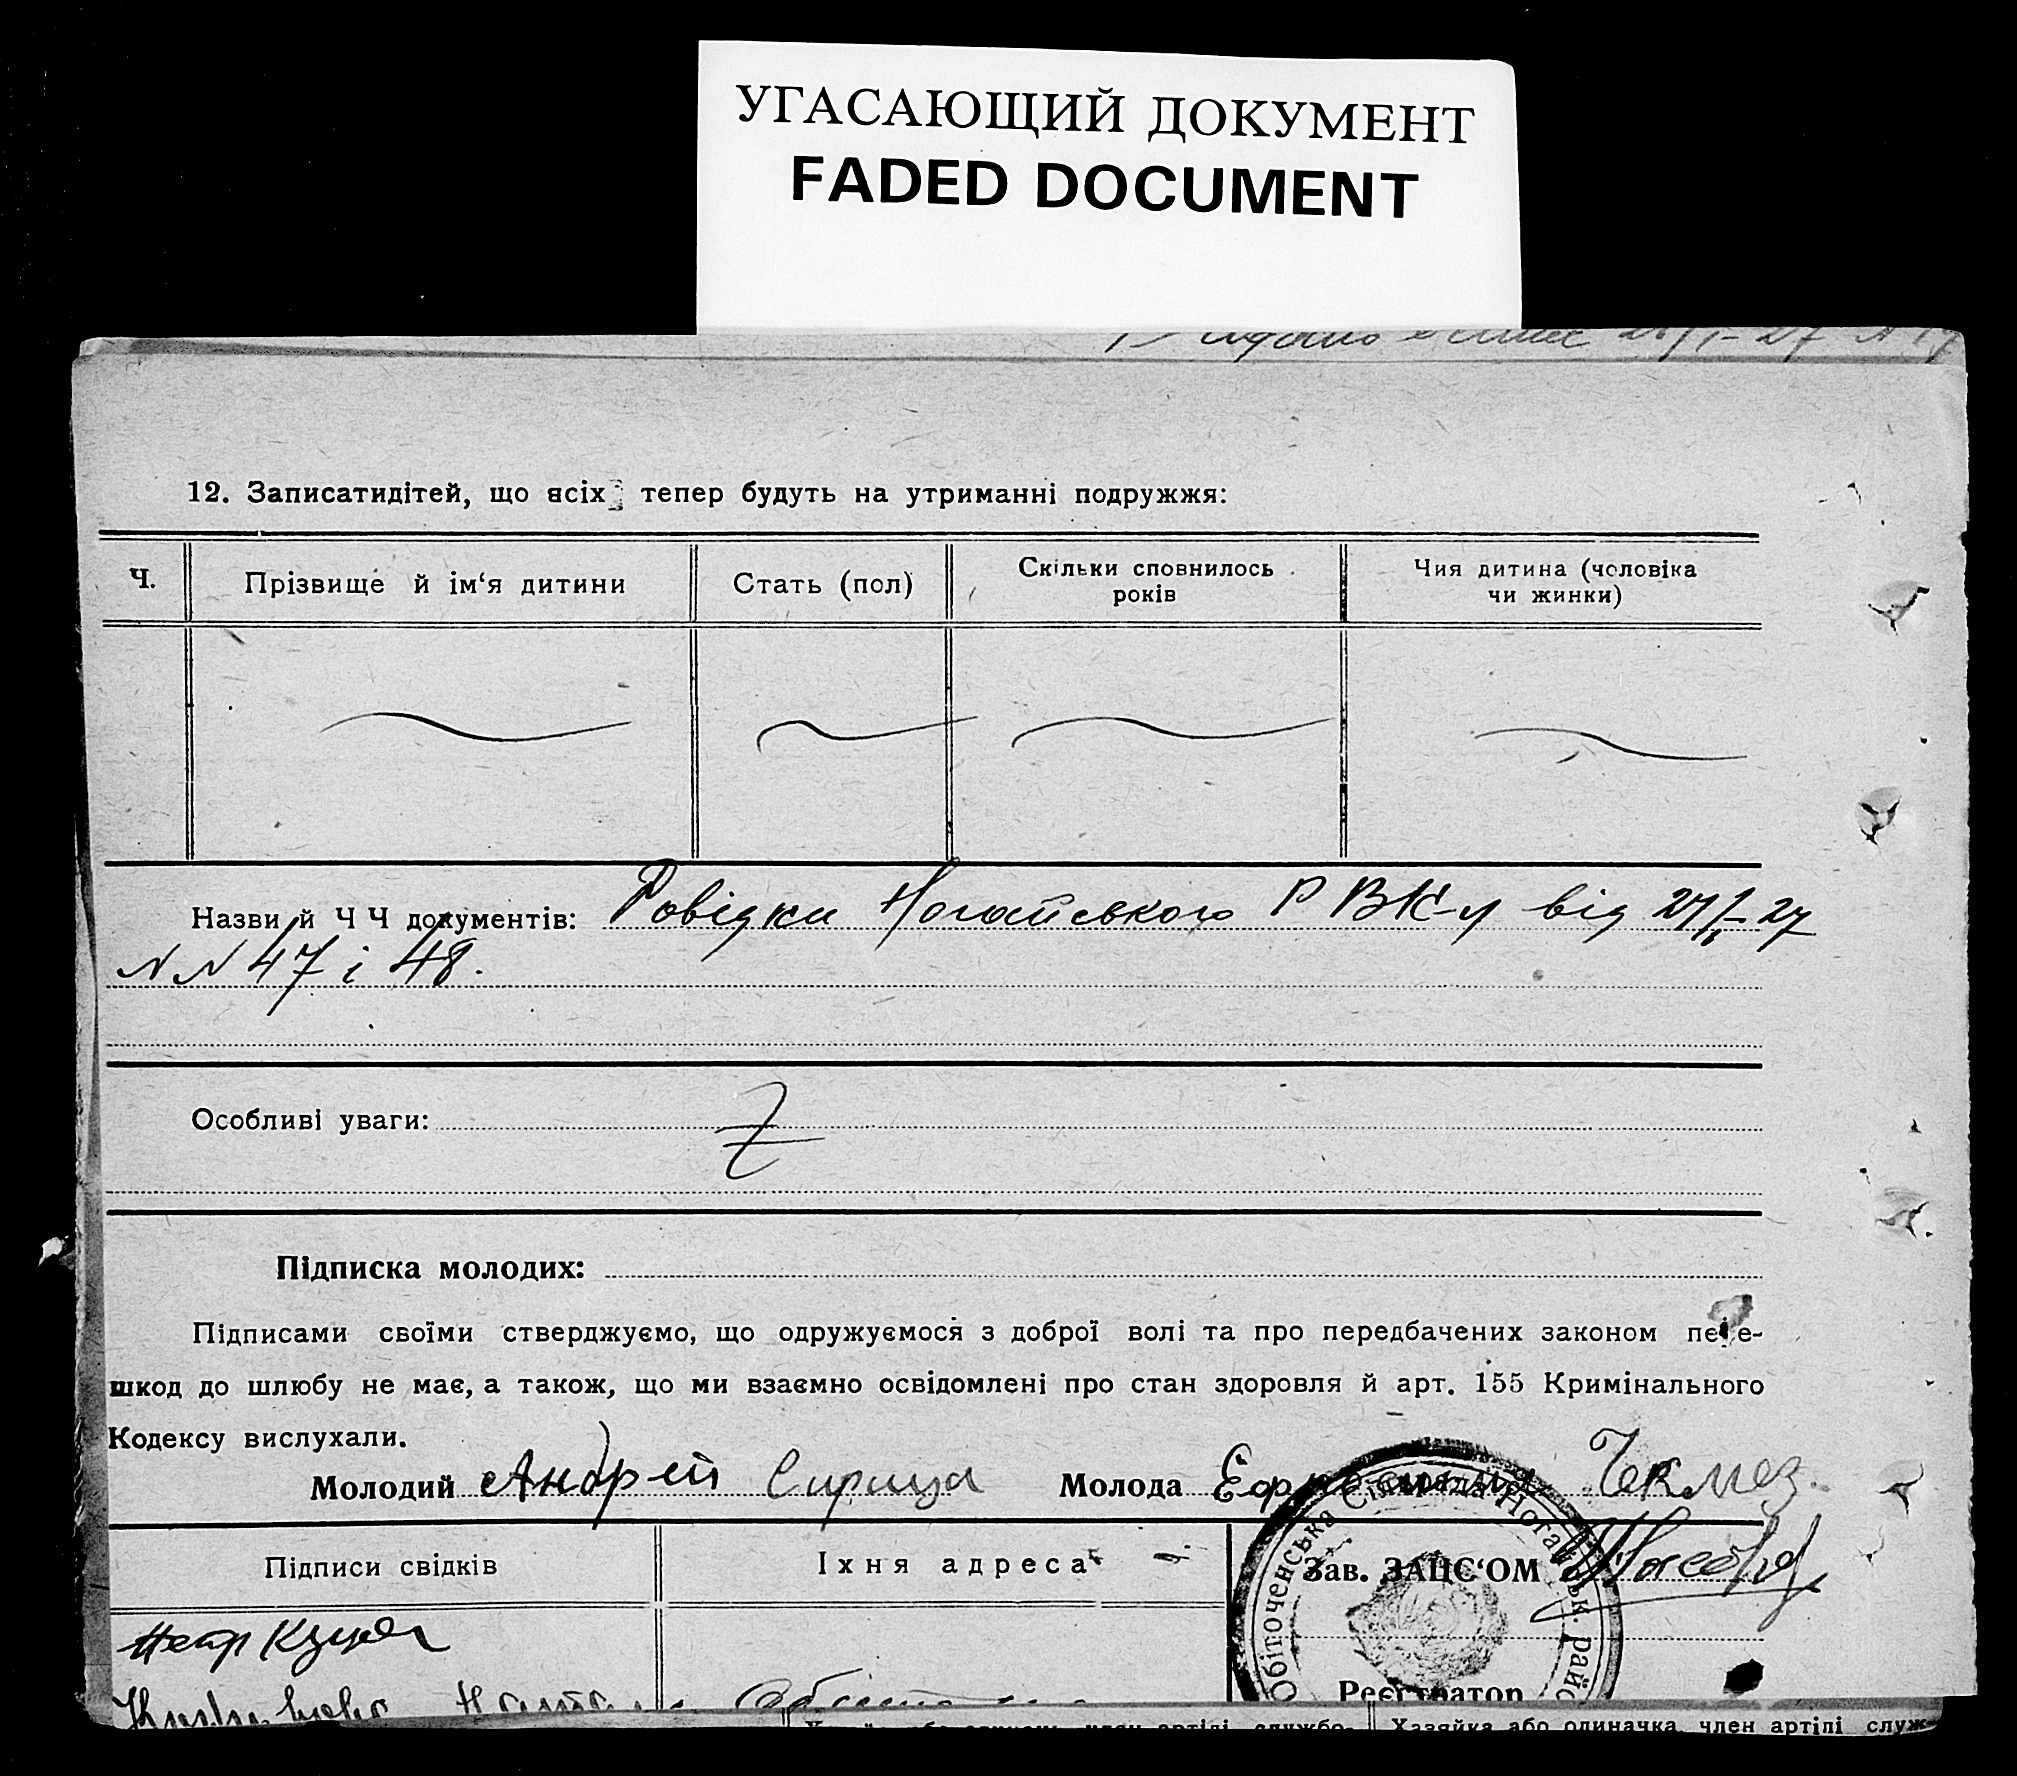 УГАСАЮЩИЙ ДОКУМЕНТ
FADED DOCUMENT
12. Записатидітей, що всіх тепер будуть на утриманні подружжя:
Ч.
Прізвище й ім‘я дитини
Стать (пол)
Скільки сповнилось
років
Чия дитина (чоловіка
чи жинки)
Назви й Ч Ч документів: Довідки Ногайського РВК-у від 27/I-27
NN 47 і 48.
Особливі уваги:
Підписка молодих:
Підписами своїми стверджуємо, що одружуємося з доброї волі та про передбачених законом пере-
шкод до шлюбу не має, а також, що ми взаємно освідомлені про стан здоровля й арт. 155 Кримінального
Кодексу вислухали.
Молодий Андрей Молода
Підписи свідків
Їхня адреса
Зав. ЗАЦС‘ОМ
Петр
Реєстратор
Обіточенська Сільрада Ногайськ. райо
Хазяйка або одиначка, член артілі служ-